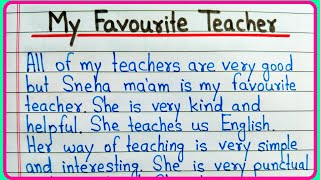 My Favourite Teacher
All of my teachers are very good
but Sneha ma'am is my favourite
teacher. She is very kind and
helpful. She teaches us English.
Her way of teaching is very simple
and interesting. She is very punctual